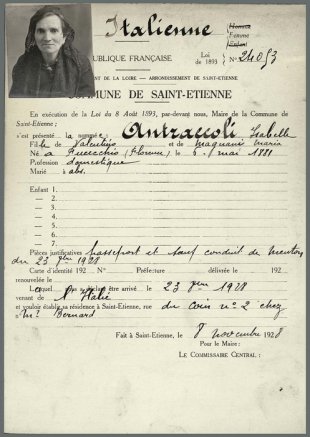 Italienne
Homme
Femme
Enfant
RÉPUBLIQUE FRANÇAISE
Loi de 1893 N° 24053
DÉPARTEMENT DE LA LOIRE — ARRONDISSEMENT DE SAINT-ETIENNE
COMMUNE DE SAINT-ETIENNE
En exécution de la Loi du 8 Août 1893, par-devant nous, Maire de la Commune de
Saint-Etienne ;
s'est présenté la nommée Antraccoli Isabelle
Fille de Valentino et de Magnani Maria
Né à Fucecchio (Florence) le 6 mai 1881
Profession domestique
Marié à
Enfant 1
— 2
— 3
— 4
— 5
— 6
— 7
Pièces justificatives passeport et sauf conduit de Menton
du 23 1928
Carte d'identité 192 N° Préfecture délivrée le 192
renouvelée le
Lequel être arrivé le 23 1928
venant de l'Italie
et vouloir établir sa résidence à Saint-Etienne, rue du Coin n° 2 chez
Mr Bernard
Fait à Saint-Etienne, le 8 novembre 1928
Pour le Maire :
LE COMMISSAIRE CENTRAL :